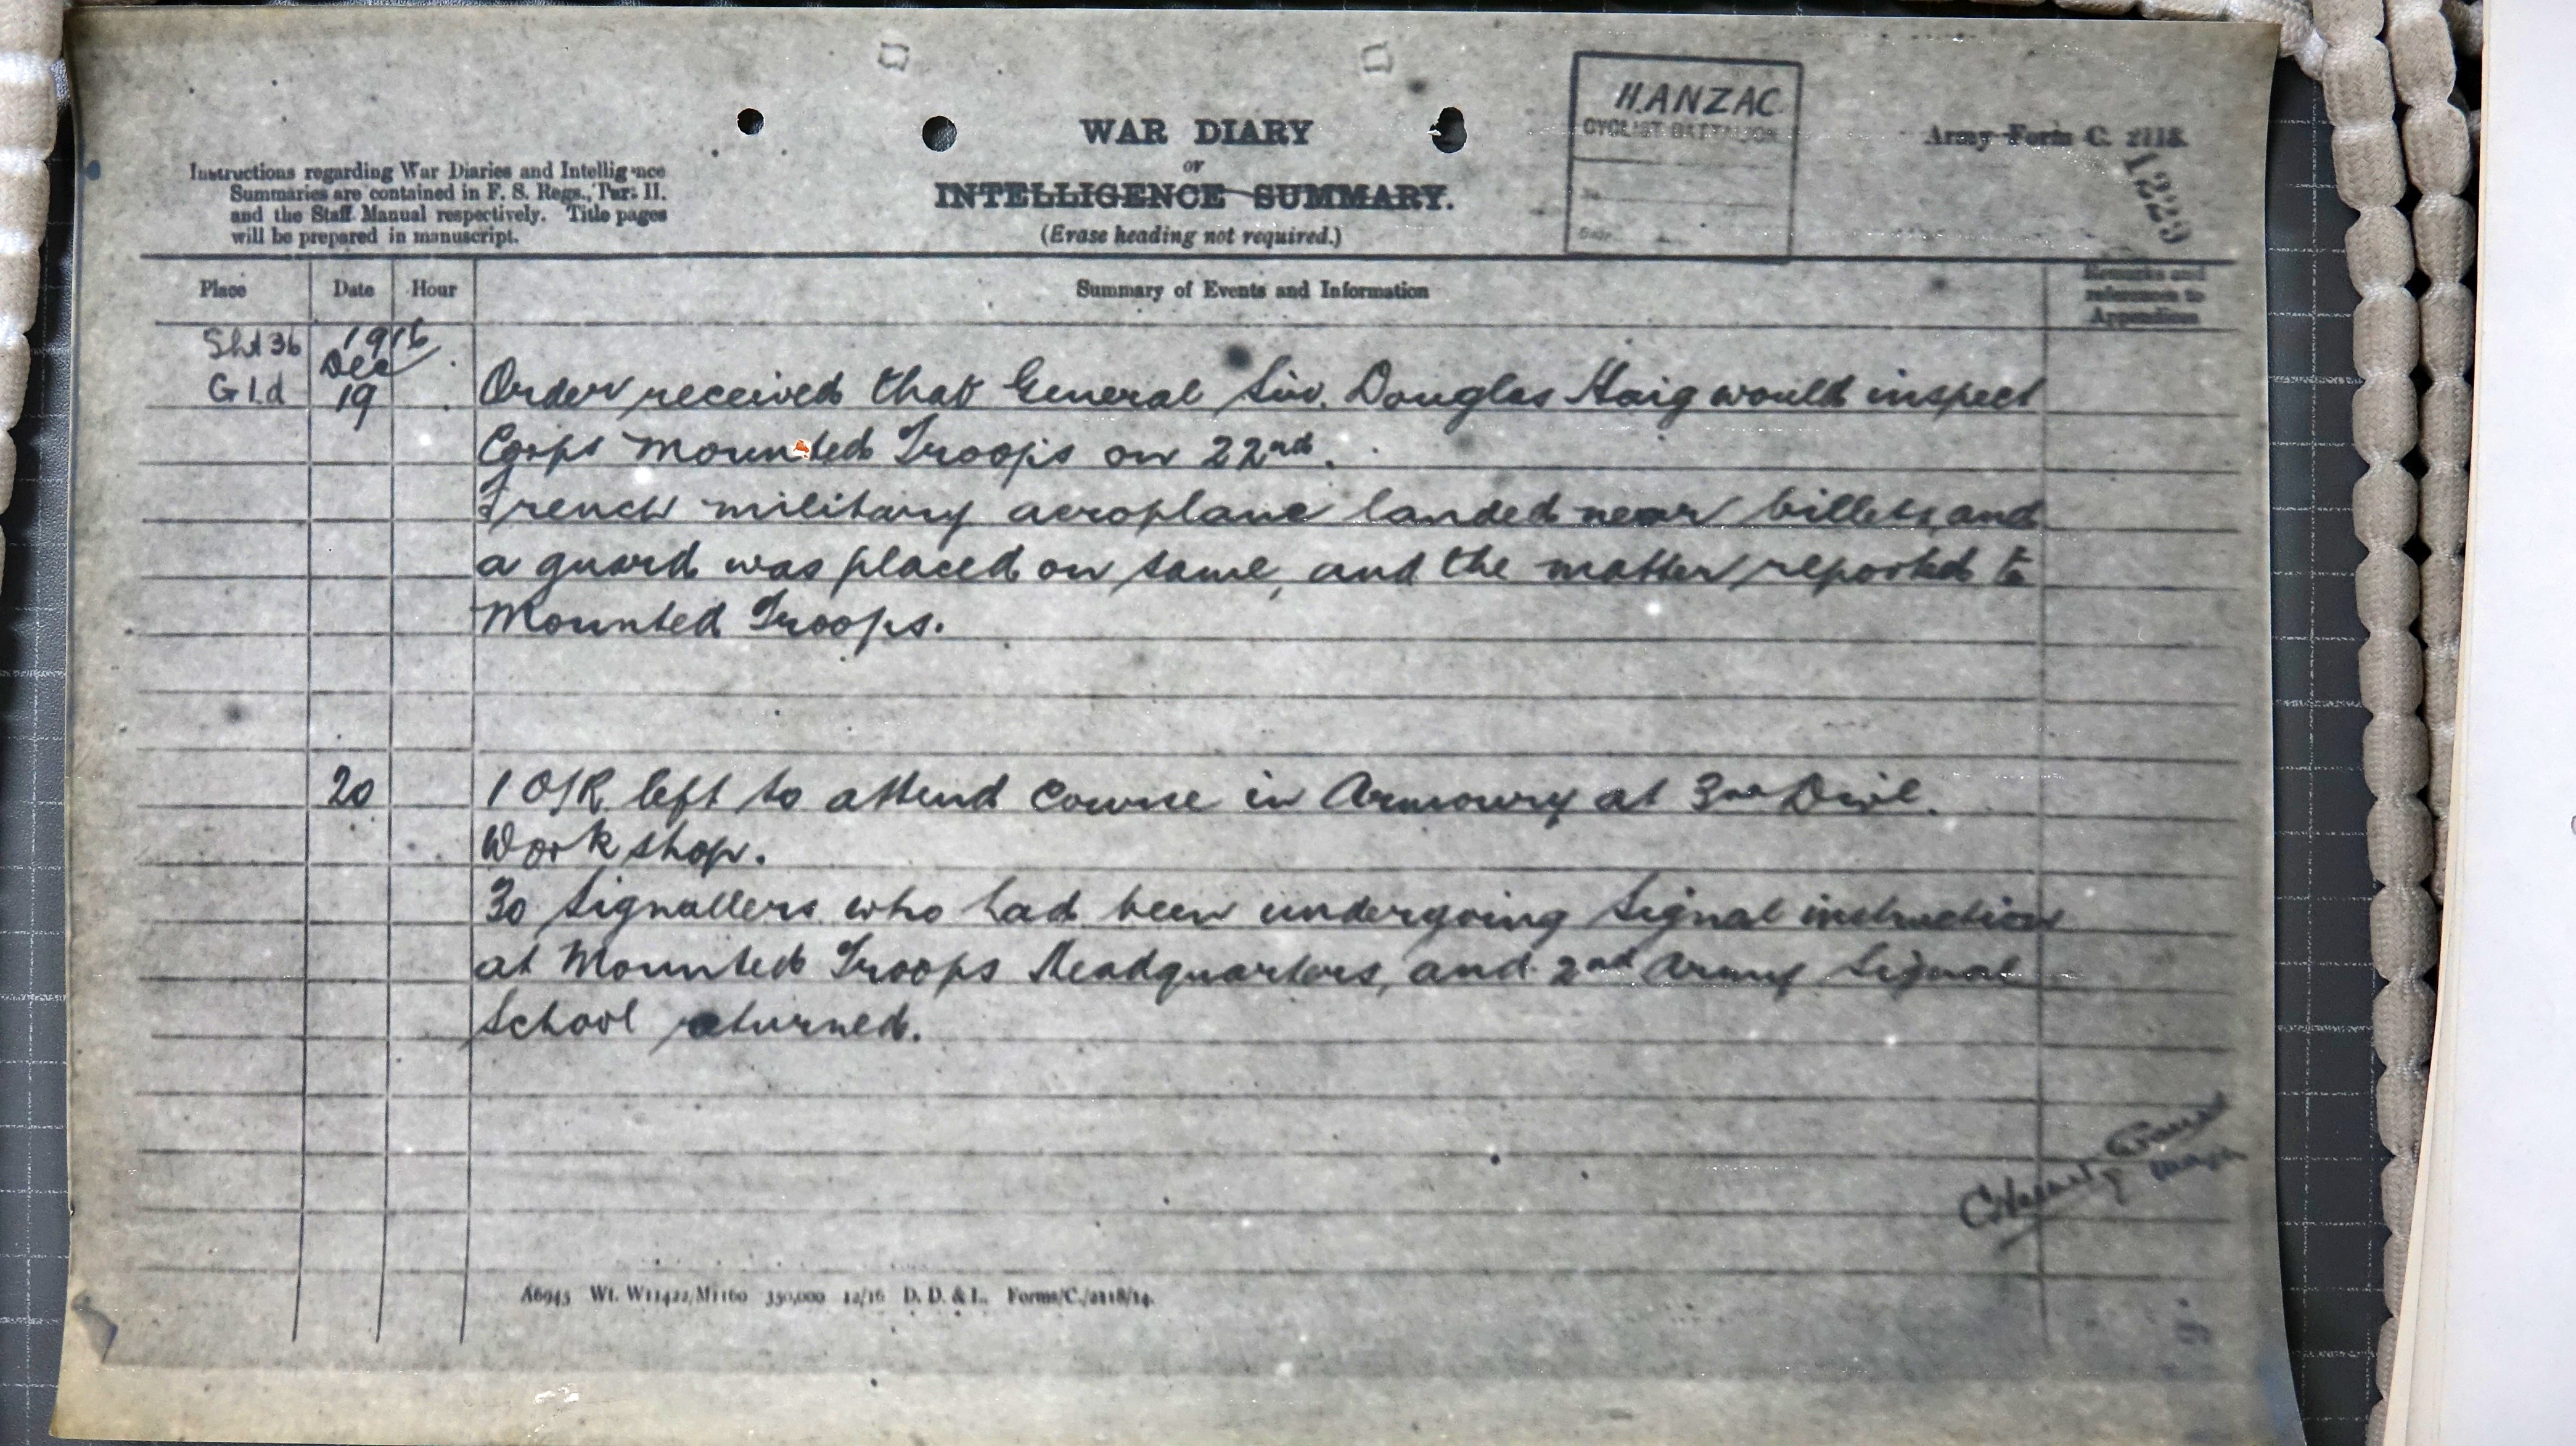 II.ANZAC
CYCLIST BATTALION
WAR DIARY
or
INTELLIGENCE SUMMARY.
(Erase heading not required.)
Army Form C. 2118.
1229
Instructions regarding War Diaries and Intelligence
Summaries are contained in F. S. Regs., Part II.
and the Staff Manual respectively. Title pages
will be prepared in manuscript.
Place Date Hour Summary of Events and Information Remarks and references to Appendices
Sht 36 1916
Dec
G1.d 19 Order received that General Sir. Douglas Haig would inspect
Corps Mounted Troops on 22nd.
French military aeroplane landed near billets, and
a guard was placed on same, and the matter reported to
Mounted Troops.
20 1 O/R left to attend course in Armoury at 3rd Divl.
Workshop.
30 Signallers who had been undergoing Signal instruction
at Mounted Troops Headquarters, and 2nd Army Signal
School returned.
Major
A6945 Wt. W11422/M1160 350,000 12/16 D. D. & L. Forms/C./2118/14.